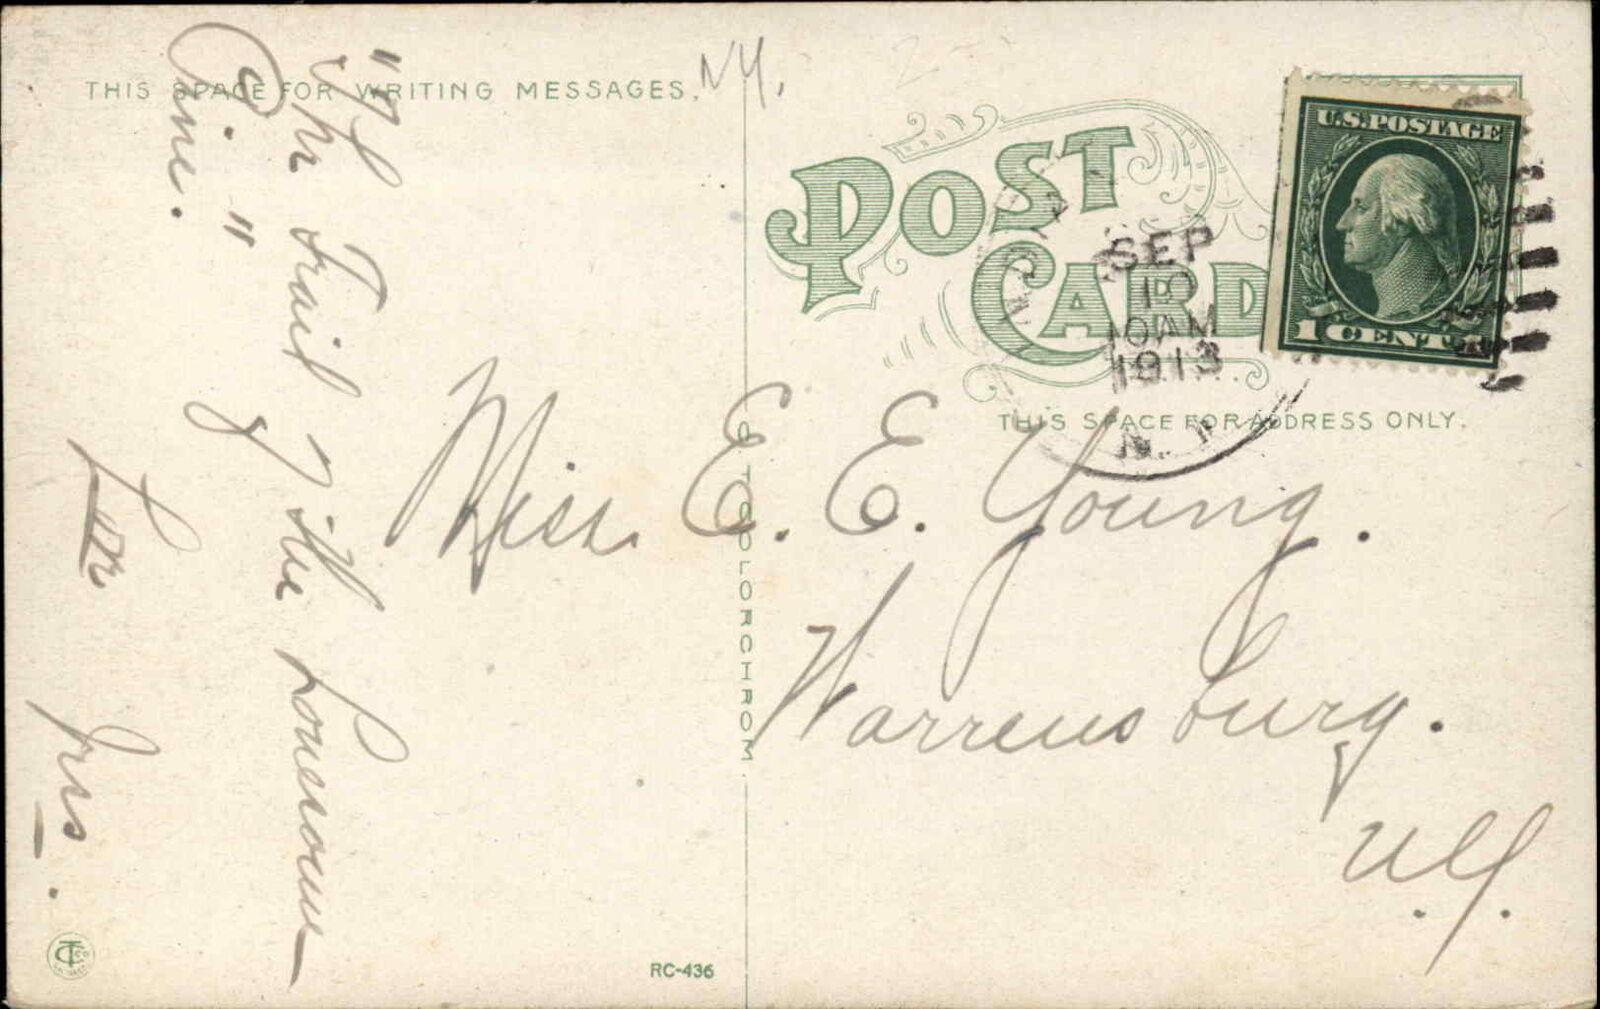 THIS SPACE FOR WRITING MESSAGES.
N.Y.
"The Trail of the Lonesome
Pine."
POST
CARD
U.S. POSTAGE
1 CENT
SEP
10
10 AM
1913
N.
THIS SPACE FOR ADDRESS ONLY.
Miss. E. E. Young.
Warrensburg.
N.Y.
OCTOCHROM
RC-436